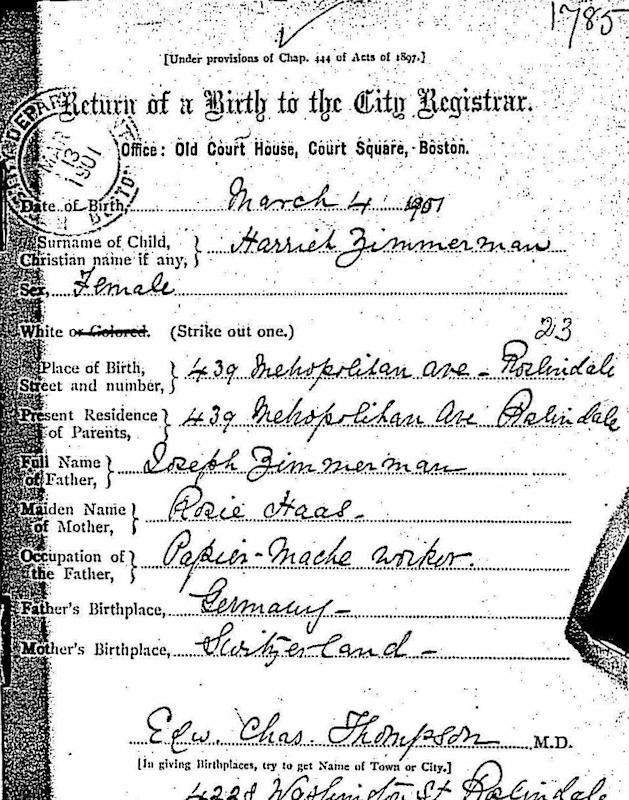 1785
[Under provisions of Chap. 444 of Acts of 1897.]
Return of a Birth to the City Registrar.
Office: Old Court House, Court Square, Boston.
MAR 13 1901
Date of Birth, March 4 1901
Surname of Child, Christian name if any, } Harriet Zimmerman
Sex, Female
White or Colored. (Strike out one.) 23
Place of Birth, Street and number, } 439 Metropolitan Ave - Roslindale
Present Residence of Parents, } 439 Metropolitan Ave Roslindale
Full Name of Father, } Joseph Zimmerman
Maiden Name of Mother, } Rosie Haas -
Occupation of the Father, } Papier-Mache worker.
Father's Birthplace, Germany -
Mother's Birthplace, Switzerland -
Edw. Chas. Thompson M.D.
[In giving Birthplaces, try to get Name of Town or City.]
4228 Washington St Roslindale